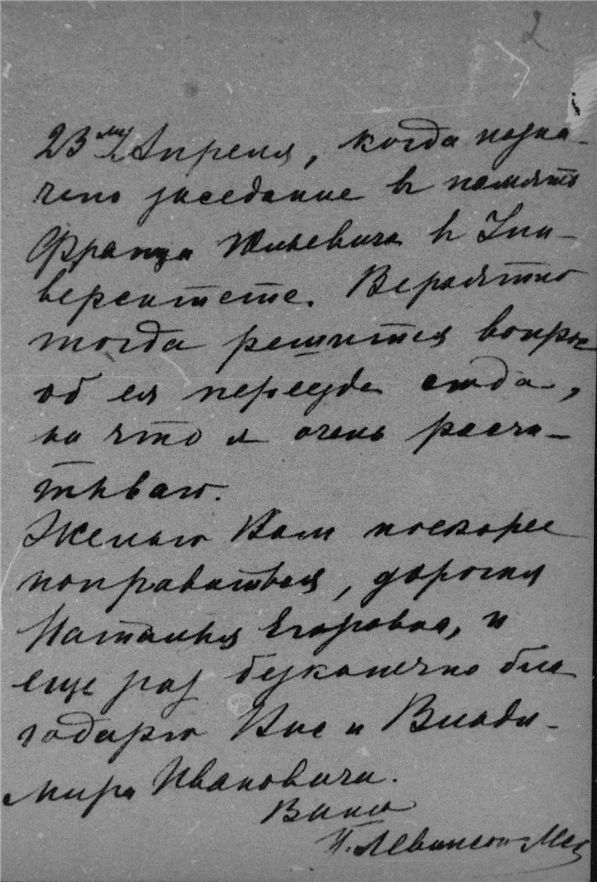 2
23го Апреля, когда назна-
чено заседание в память
Франца Юльевича в Уни-
верситете. Вероятно
тогда решится вопрос
об ея переезде сюда,
на что я очень расчи-
тываю.
Желаю Вам поскорее
поправиться, дорогая
Наталья Егоровна, и
еще раз безконечно бла
годарю Вас и Влади-
мира Ивановича.
Ваша
Левинсон